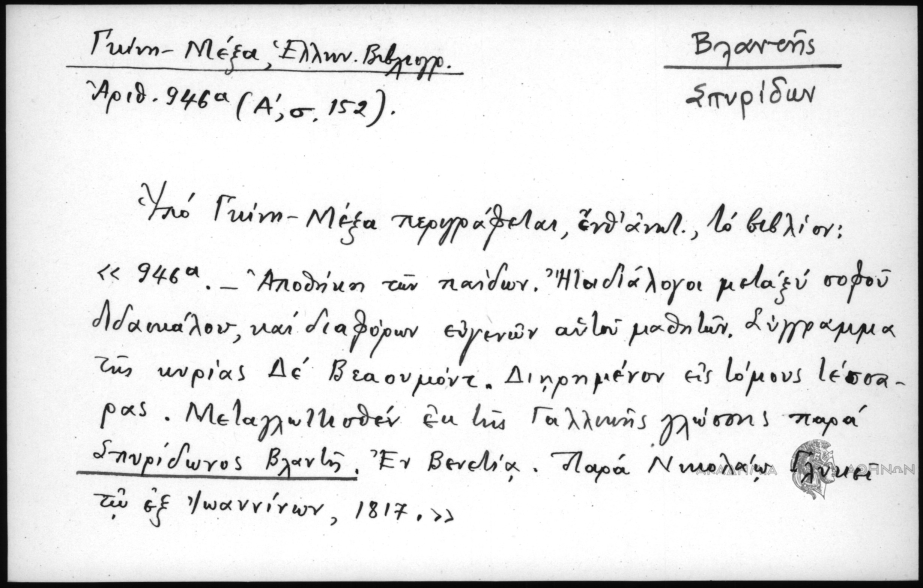 Γκίνη-Μέξα, Ἑλλην. Βιβλιογρ.
Ἀριθ. 946α (Α', σ. 152).
Βλαντῆς
Σπυρίδων
Ὑπό Γκίνη-Μέξα περιγράφεται, ἔνθ' ἀνωτ., τό βιβλίον:
« 946α. — Ἀποθήκη τῶν παίδων. Ἤτοι διάλογοι μεταξύ σοφοῦ
διδασκάλου, καί διαφόρων εὐγενῶν αὐτοῦ μαθητῶν. Σύγγραμμα
τῆς κυρίας Δέ Βεαουμόντ. Διῃρημένον εἰς τόμους τέσσα-
ρας. Μεταγλωττισθέν ἐκ τῆς Γαλλικῆς γλώσσης παρά
Σπυρίδωνος Βλαντῆ. Ἐν Βενετίᾳ. Παρά Νικολάῳ Γλυκεῖ
τῷ ἐξ Ἰωαννίνων, 1817. »
ΑΚΑΔΗΜΙΑ ΑΘΗΝΩΝ